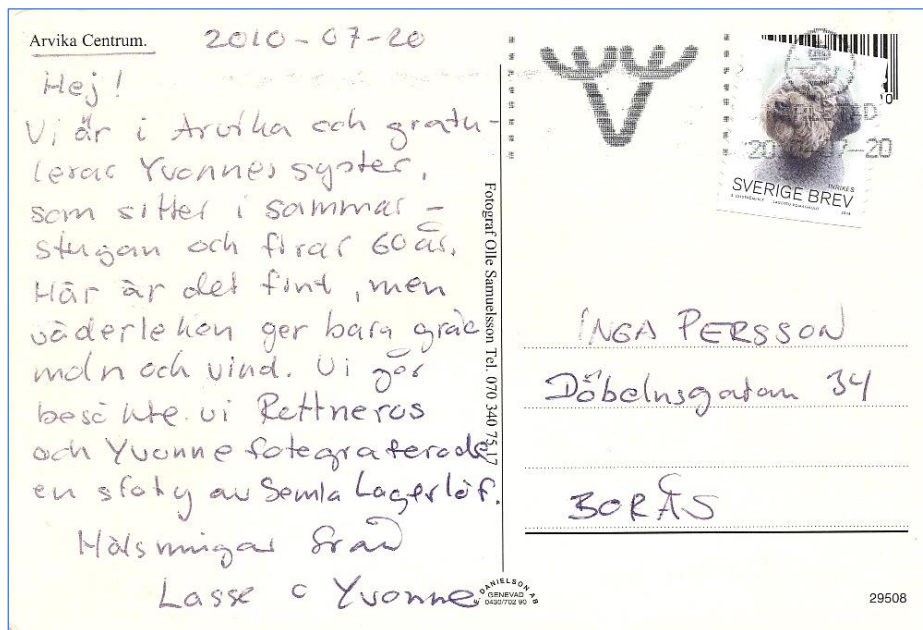 Arvika Centrum.
2010-07-20
Hej!
Vi är i Arvika och gratu-
lerar Yvonnes syster,
som sitter i sommar-
stugan och firar 60 år.
Här är det fint, men
väderleken ger bara gråa
moln och vind. Vi går
besökte vi Rottneros
och Yvonne fotograferade
en staty av Semla Lagerlöf.
Hälsningar från
Lasse o Yvonne
Fotograf Olle Samuelsson Tel. 070 340 75 17
DANIELSON AB
GENEVAD
0430/702 90
INRIKES
SVERIGE BREV
INGA PERSSON
Döbelnsgatan 34
BORÅS
29508